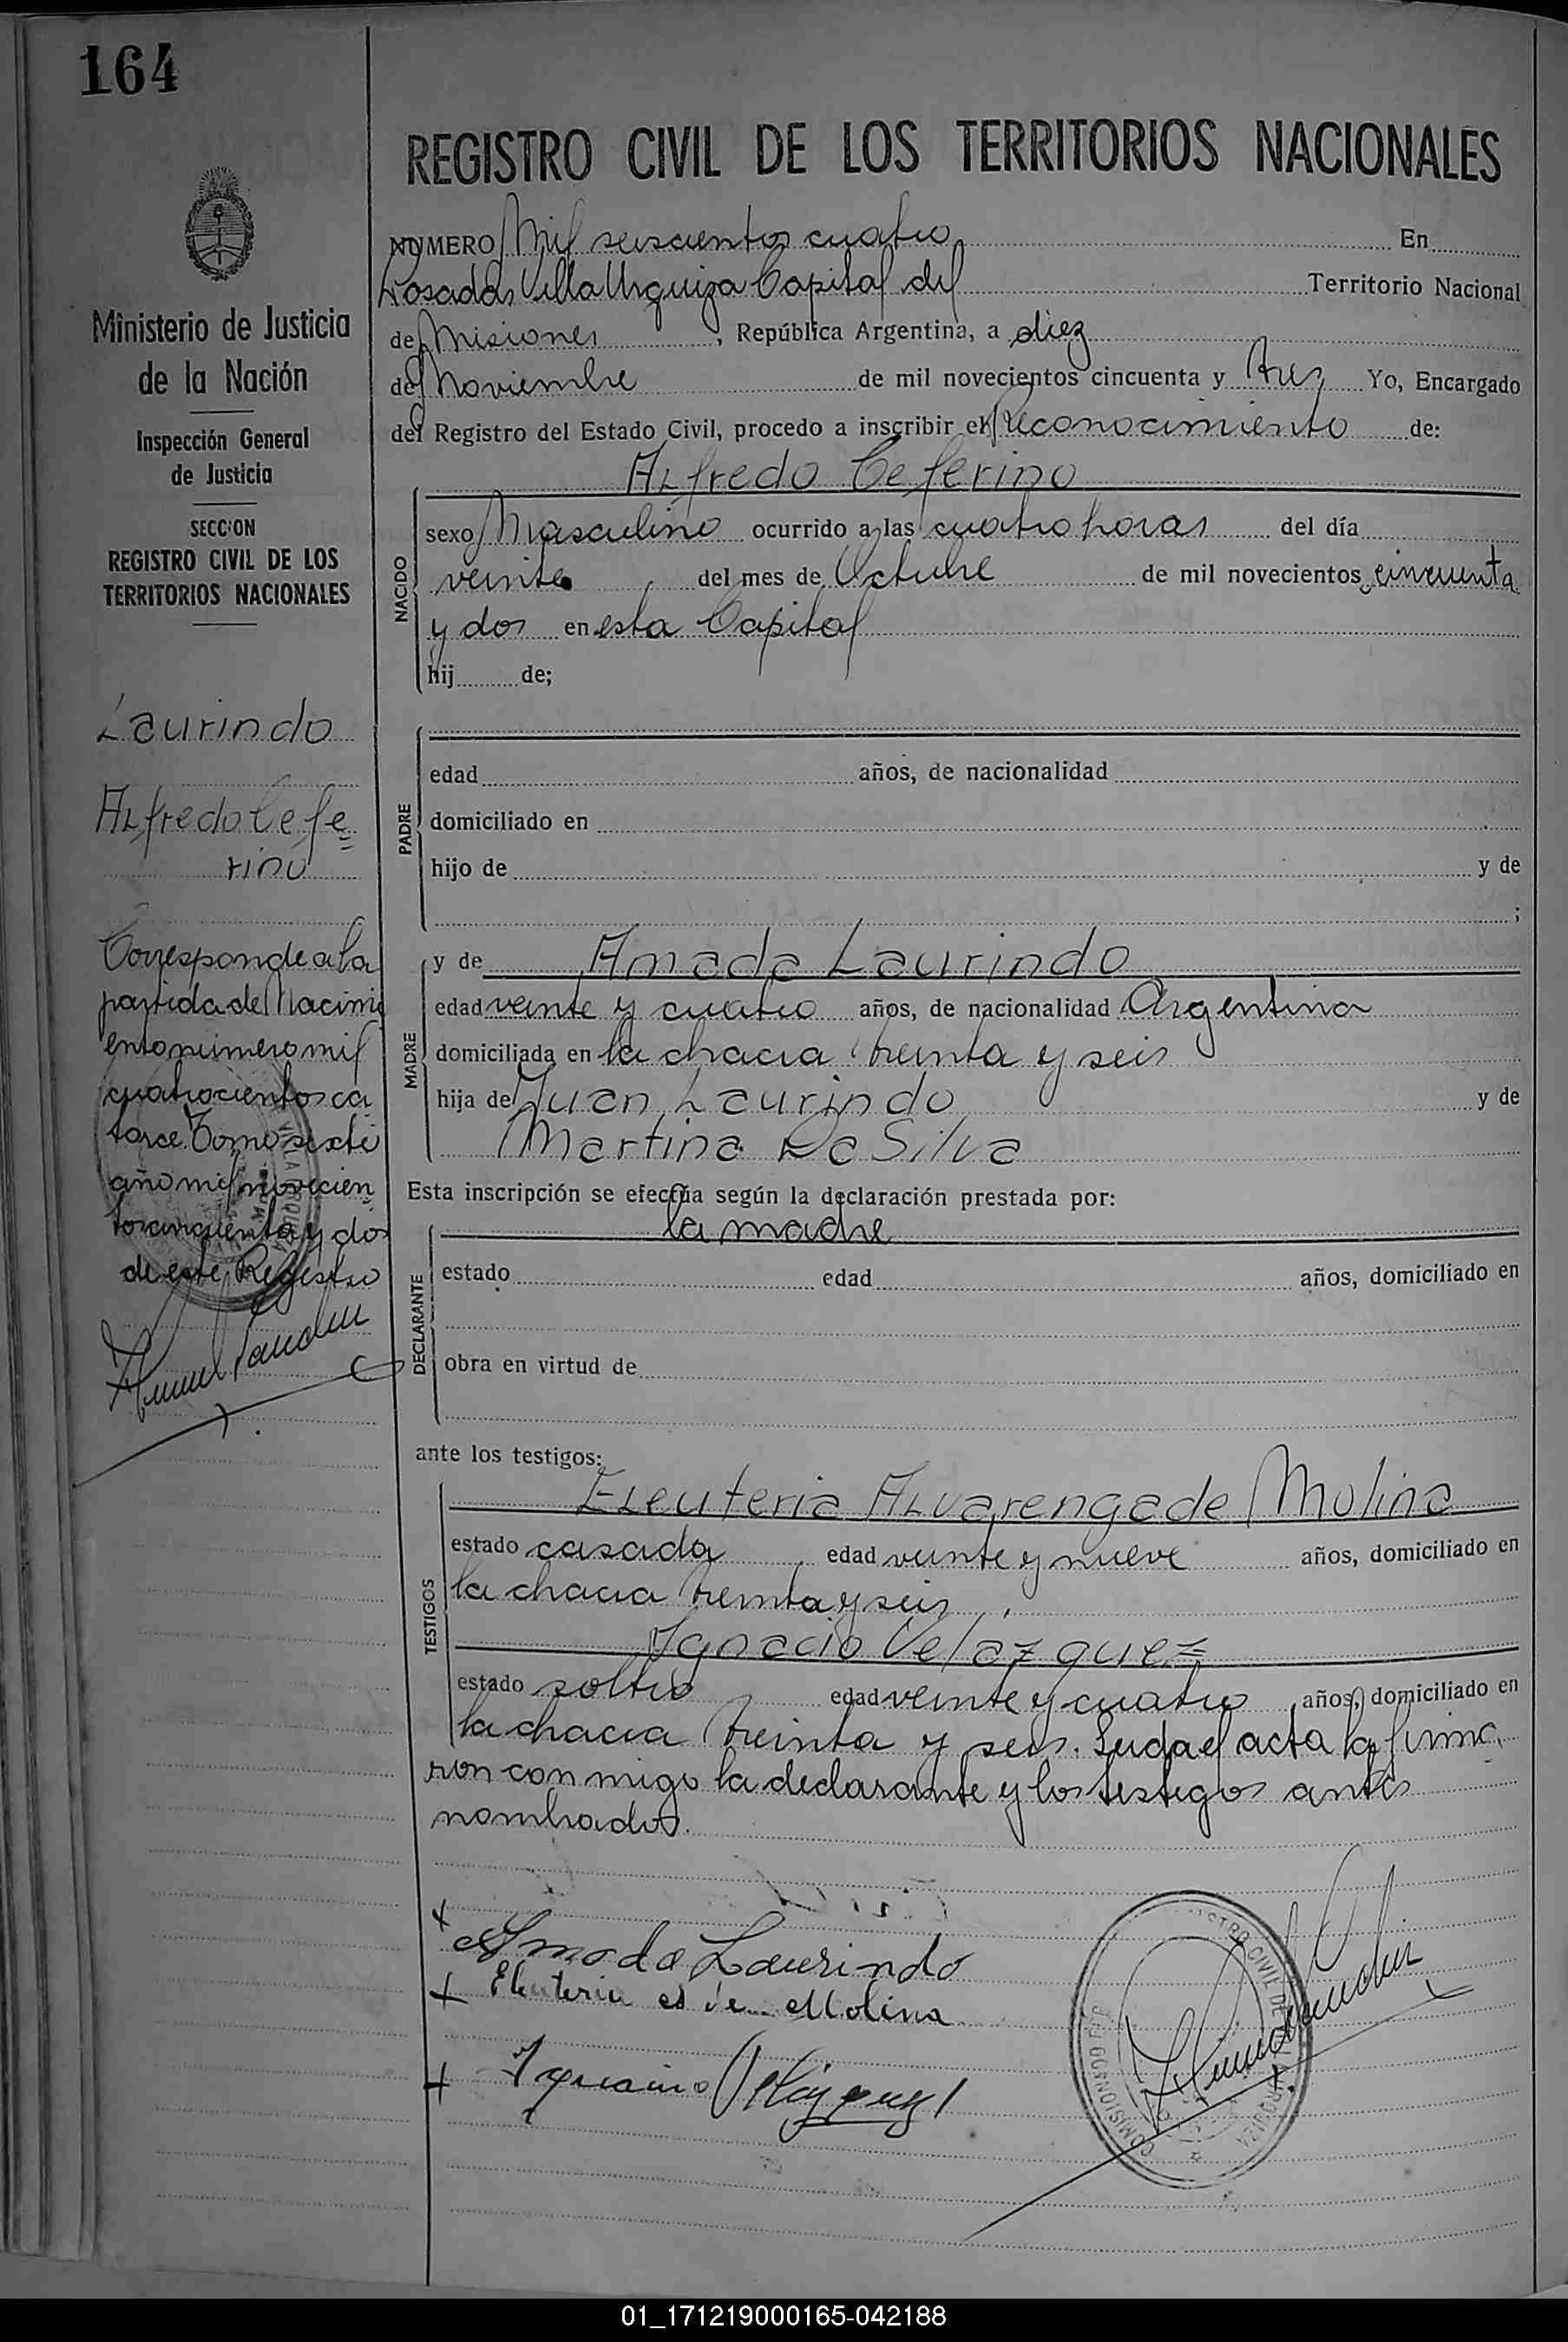 164
REGISTRO CIVIL DE LOS TERRITORIOS NACIONALES
NUMERO Mil seiscientos cuatro En
Posadas Villa Urquiza Capital del Territorio Nacional
de Misiones, República Argentina, a diez
de Noviembre de mil novecientos cincuenta y tres Yo, Encargado
del Registro del Estado Civil, procedo a inscribir el Reconocimiento de:
Alfredo Ceferino
NACIDO
sexo Masculino ocurrido a las cuatro horas del día
veinte del mes de Octubre de mil novecientos cincuenta
y dos en esta Capital
hij de;
PADRE
edad años, de nacionalidad
domiciliado en
hijo de y de
;
MADRE
y de Amada Laurindo
edad veinte y cuatro años, de nacionalidad Argentina
domiciliada en la chacra treinta y seis
hija de Juan Laurindo y de
Martina Da Silva
Esta inscripción se efectúa según la declaración prestada por:
la madre
DECLARANTE
estado edad años, domiciliado en
obra en virtud de
ante los testigos:
TESTIGOS
Eleuteria Alvarenga de Molina
estado casada edad veinte y nueve años, domiciliado en
la chacra treinta y seis
Ygnacio Velazquez
estado soltro edad veinte y cuatro años, domiciliado en
la chacra treinta y seis. Leida el acta la firma
ron con migo la declarante y los testigos antes
nombrados.
Amada Laurindo
Eleuteria de Molina
Ygnacio Velazquez
Ministerio de Justicia
de la Nación
Inspección General
de Justicia
SECCION
REGISTRO CIVIL DE LOS
TERRITORIOS NACIONALES
Laurindo
Alfredo Cefe=
rino
Corresponde a la
partida de Nacimi
ento número mil
cuatrocientos ca
torce. Tomo sexto
año mil novecien
tos cincuenta y dos
de este Registro
01_171219000165-042188